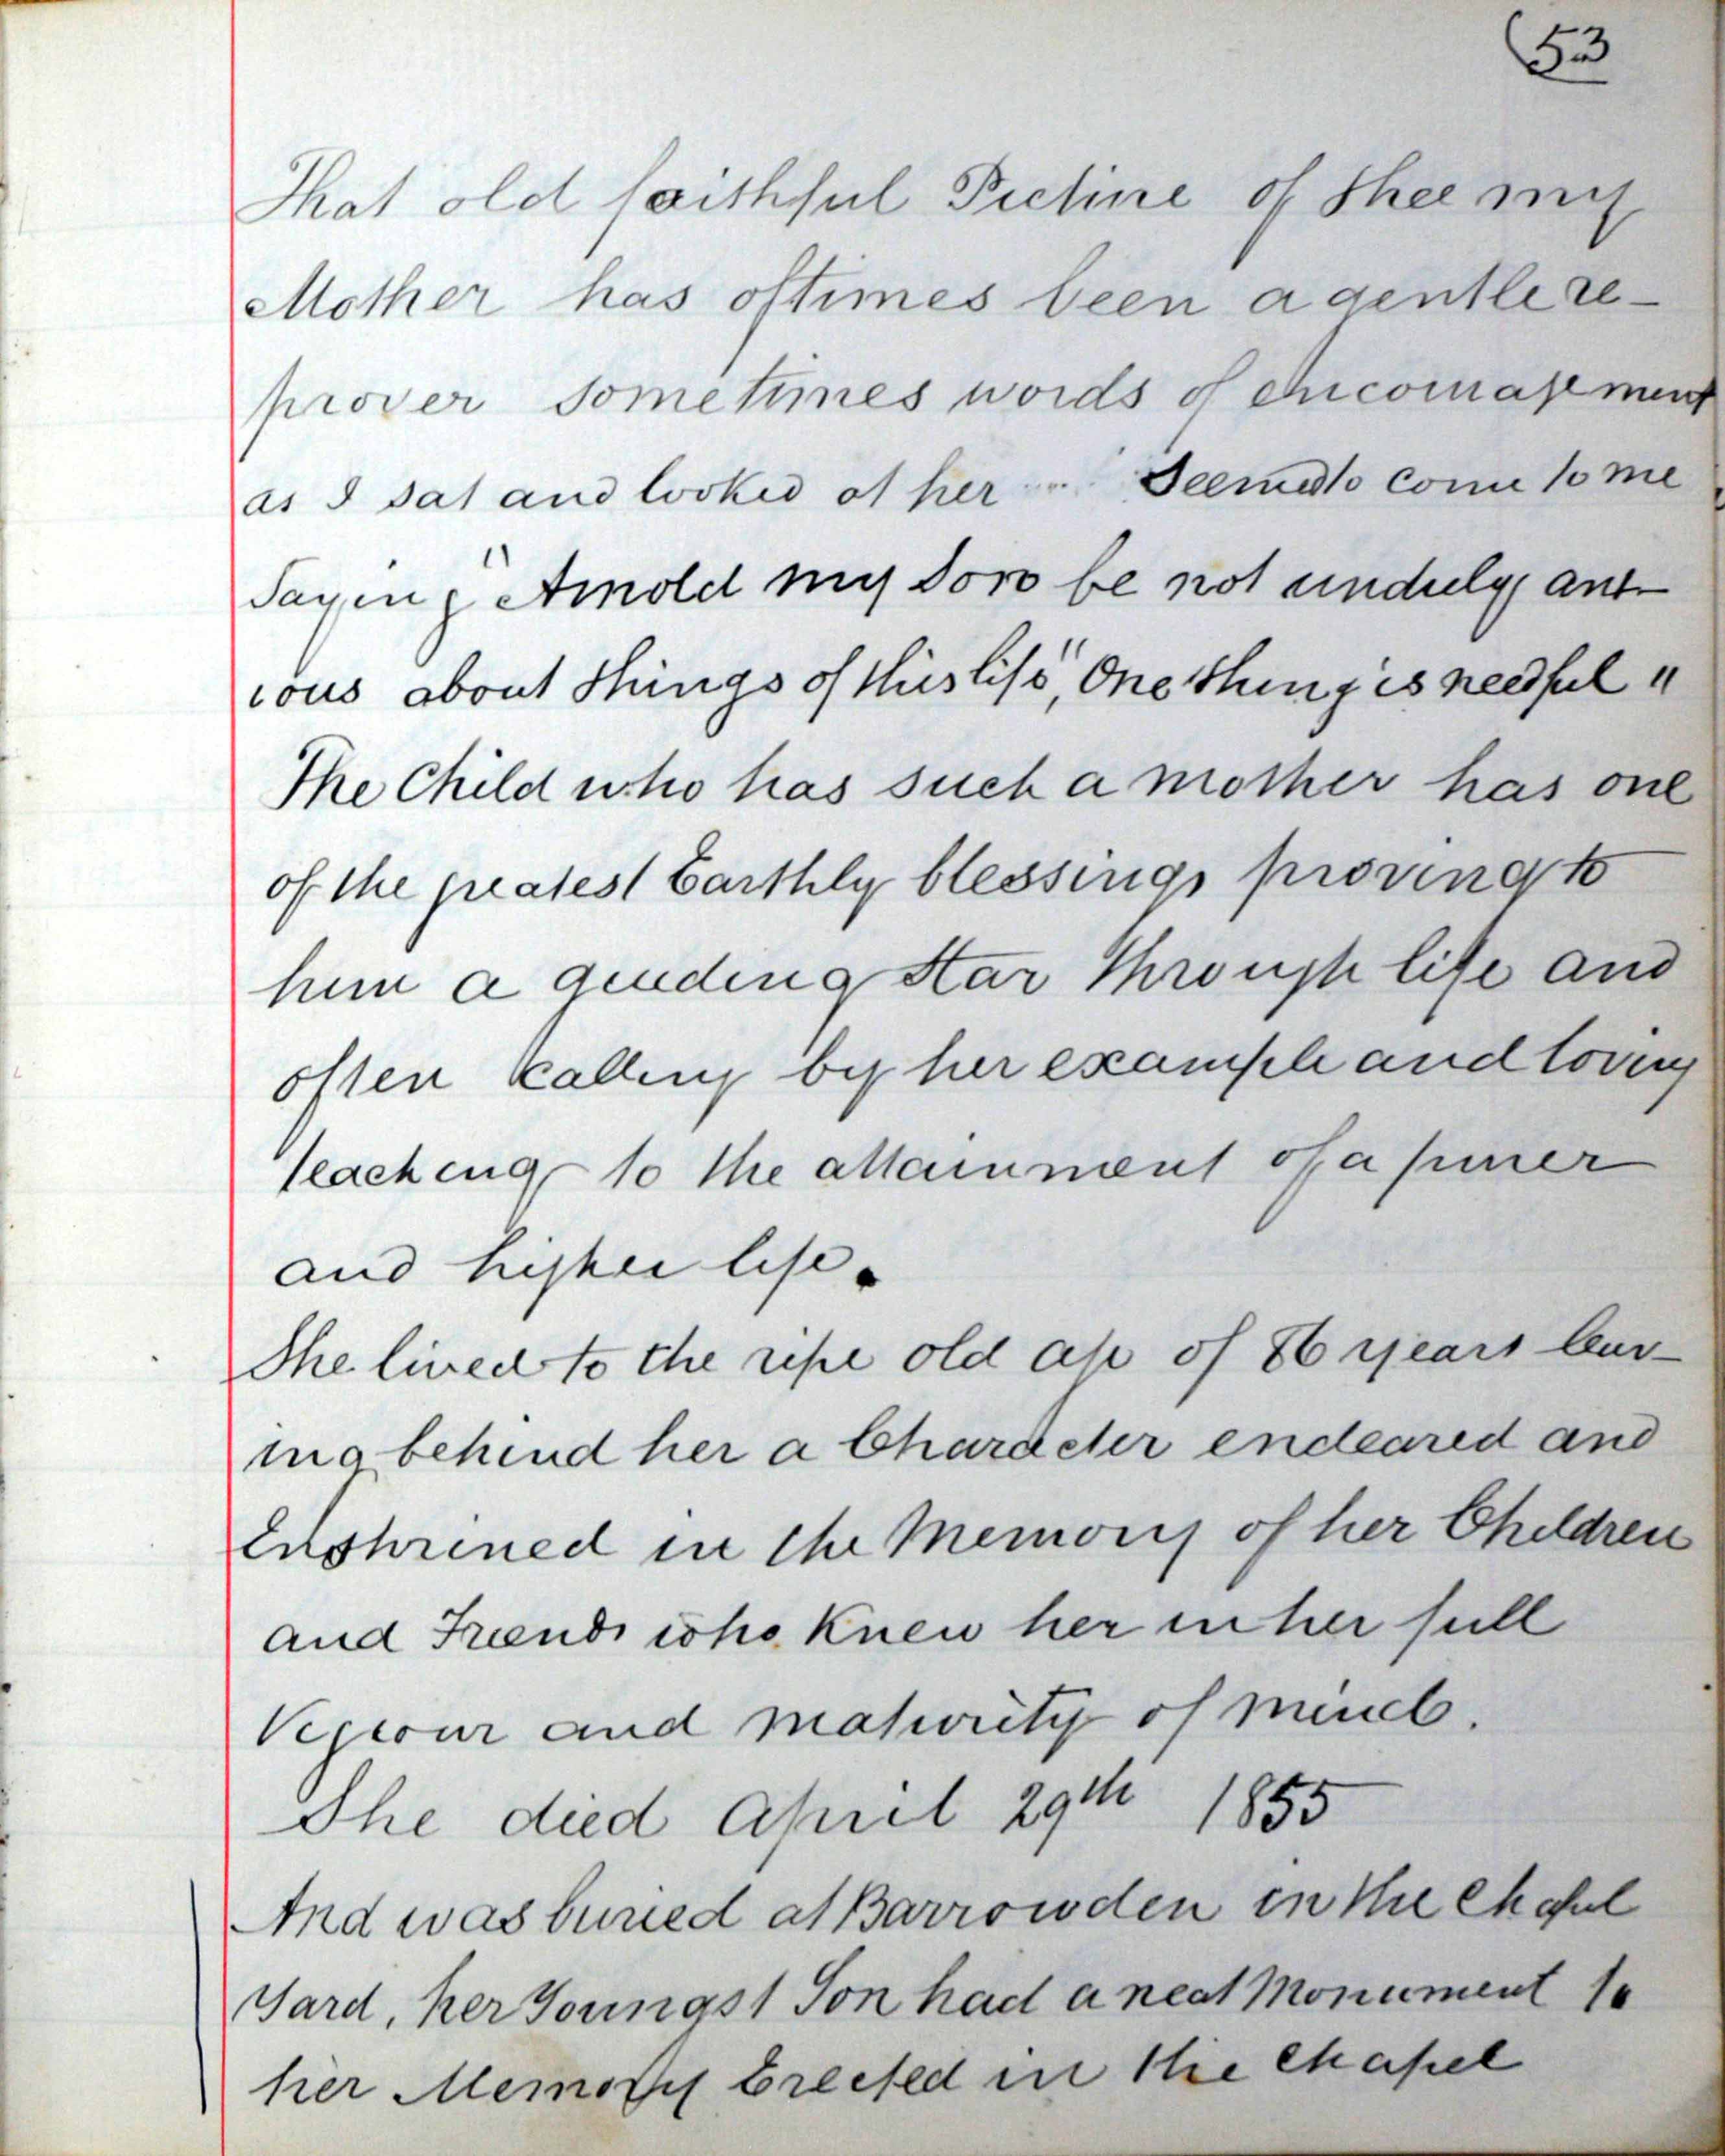 (53
That old faithful Picture of thee my
Mother has oftimes been a gentle re-
prover sometimes words of encouragement
as I sat and looked at her seemed to come to me
Saying "Arnold my Son be not unduly anx-
ious about things of this life", One thing is needful "
The Child who has such a mother has one
of the greatest Earthly blessings proving to
him a guiding Star through life and
often calling by her example and loving
teaching to the attainment of a purer
and higher life.
She lived to the ripe old age of 86 years leav-
ing behind her a Character endeared and
Enshrined in the Memory of her Children
and Friends who knew her in her full
Vigour and maturity of mind.
She died April 29th 1855
And was buried at Barrowden in the Chapel
Yard, her Youngest Son had a neat Monument to
her Memory Erected in the Chapel